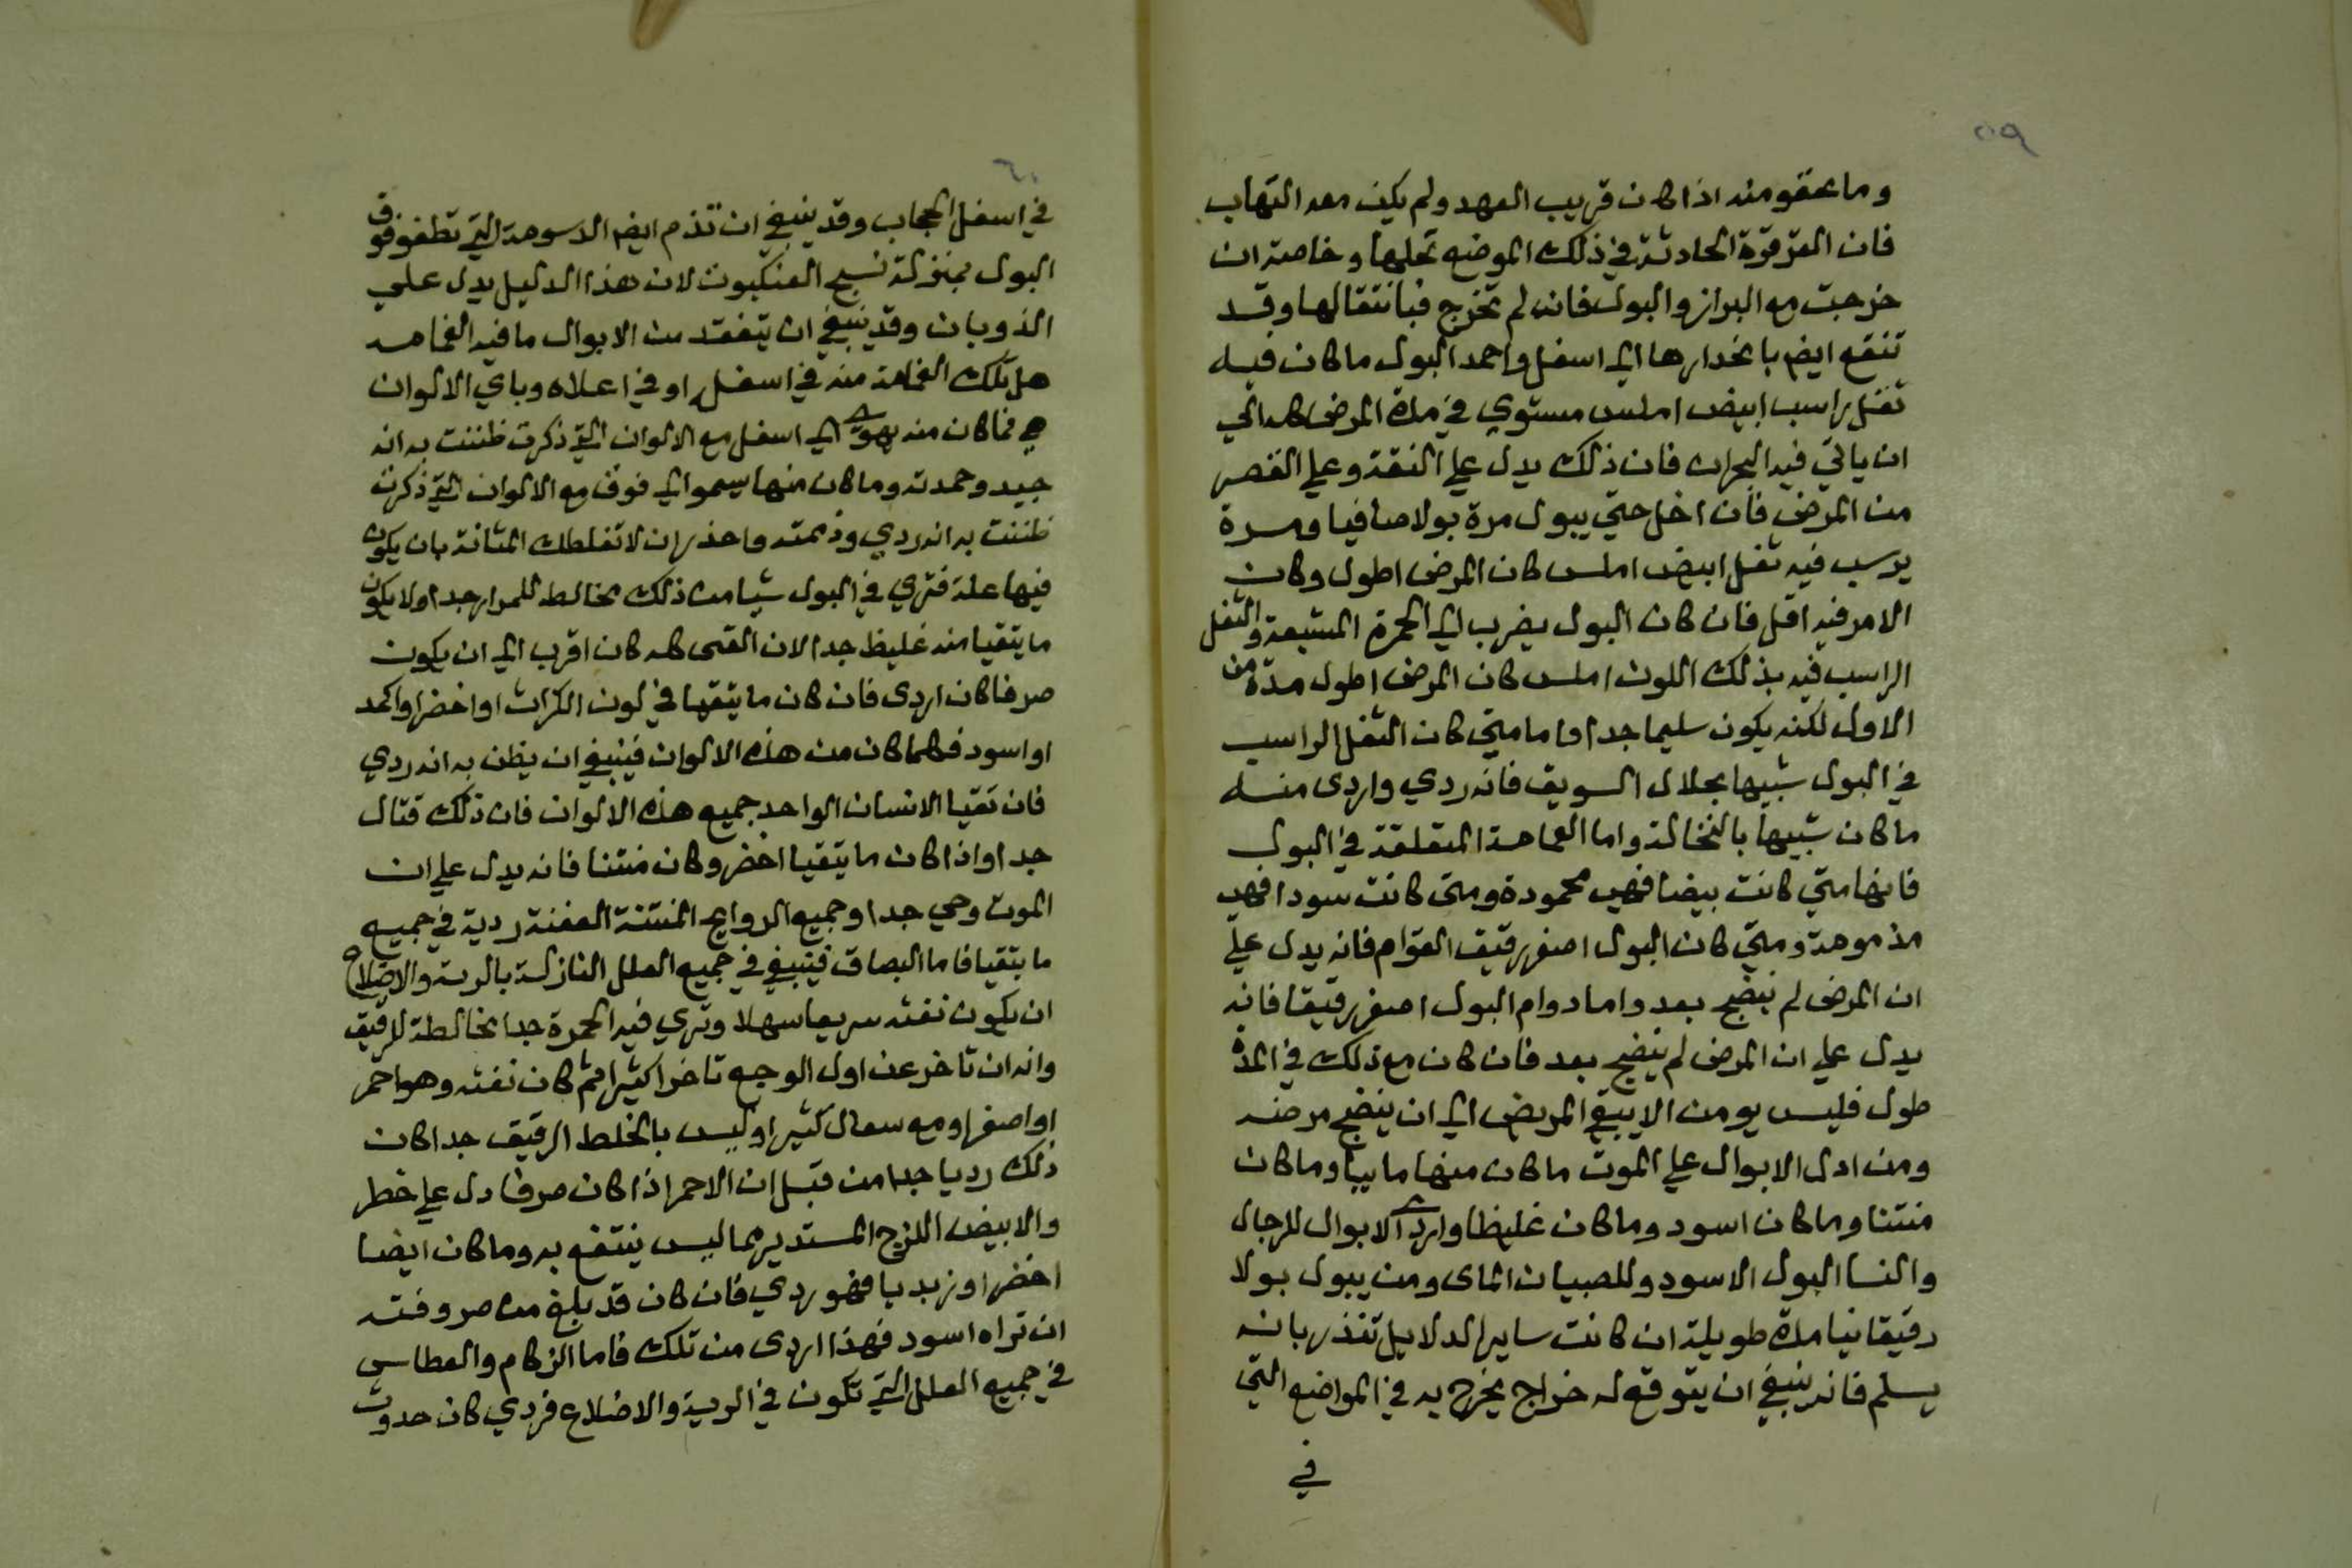 ٥٩
وما عقو منه اذا كان قريب العهد ولم يكن معه التهاب
فان القرقرة الحادثة في ذلك الموضع تحلها وخاصة ان
خرجت مع البراز والبول فان لم تخرج فبانتقالها وقد
تنفع ايضا بانحدارها الى اسفل واحمد البول ما كان فيه
ثفل راسب ابيض املس مستوي في مدة المرض كله الي
ان ياتي فيه البحران فان ذلك يدل علي الثقة وعلي القصر
من المرض فان اخل حتي يبول مرة بولا صافيا ومرة
يرسب فيه ثفل ابيض املس كان المرض اطول وكان
الامر فيه اقل فان كان البول يضرب الي الحمرة المشبعة والثفل
الراسب فيه بذلك اللون املس كان المرض اطول مدة من
الاول لكنه يكون سليما جدا واما متي كان الثفل الراسب
في البول شبيها بجلال السويق فانه ردي واردى منه
ما كان شبيها بالنخالة واما الغمامة المتعلقة في البول
فانها متي كانت بيضا فهي محمودة ومتى كانت سودا فهي
مذمومة ومتي كان البول اصفر رقيق القوام فانه يدل علي
ان المرض لم ينضج بعد واما دوام البول اصفر رقيقا فانه
يدل علي ان المرض لم ينضج بعد فان كان مع ذلك في المدة
طول فليس يومن الا يبقي المريض الي ان ينضج مرضه
ومن ادل الابوال علي الموت ما كان منها ماييا وما كان
منتنا وما كان اسود وما كان غليظا واردى الابوال للرجال
والنسا البول الاسود وللصبيان الماى ومن يبول بولا
رقيقا نيا مدة طويلة ان كانت ساير الدلايل تنذر بانه
يسلم فانه ينبغي ان يتوقع له خراج يخرج به في المواضع التي
في
٦٠
في اسفل الحجاب وقد ينبغي ان تذم ايضا الدسومة التي تطفو فوق
البول بمنزلة نسج العنكبوت لان هذا الدليل يدل علي
الذوبان وقد ينبغي ان يتفقد من الابوال ما فيه الغمامه
هل تلك الغمامة منه في اسفله او في اعلاه وباي الالوان
هي فما كان منه يهوي الي اسفل مع الالوان التي ذكرت ظننت به انه
جيد وحمدته وما كان منها يسمو الي فوق مع الالوان التي ذكرت
ظننت به انه ردي وذممته واحذر ان لا تغلطك المثانة بان يكون
فيها علة فتري في البول شيا من ذلك مخالط للمرار جدا ولا يكون
ما يتقيا منه غليظ جدا لان القى كله كان اقرب الي ان يكون
صرفا كان اردى فان كان ما يتقيا في لون الكراث او اخضر او اكمد
او اسود فكلما كان من هذه الالوان فينبغي ان يظن به انه ردي
فان تقيا الانسان الواحد جميع هذه الالوان فان ذلك قتال
جدا واذا كان ما يتقيا اخضر وكان منتنا فانه يدل علي ان
الموت وحي جدا وجميع الروايح المنتنة العفنة ردية في جميع
ما يتقيا فاما البصاق فينبغي في جميع العلل النازلة بالرية والاضلاع
ان يكون نفثه سريعا سهلا وتري فيه الحمرة جدا مخالطة للرقيق
وانه ان تاخر عن اول الوجع تاخرا كثيرا ثم كان نفثه وهو احمر
او اصفر او مع سعال كثير اوليس بالخلط الرقيق جدا كان
ذلك رديا جدا من قبل ان الاحمر اذا كان صرفا دل علي خطر
والابيض اللزج المستدير مما ليس ينتفع به وما كان ايضا
اخضر او زبديا فهو ردي فان كان قد بلغ من صروفته
ان تراه اسود فهذا اردى من تلك فاما الزكام والعطاس
في جميع العلل التي تكون في الرية والاضلاع فردي كان حدوث